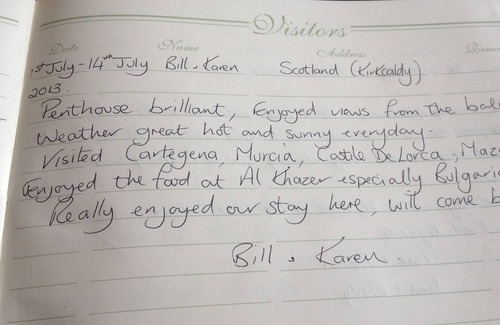 Visitors
Date Name Address
1st July - 14th July Bill & Karen Scotland (Kirkcaldy)
2013.
Penthouse brilliant, Enjoyed views from the
Weather great hot and sunny everyday.
Visited Cartegena, Murcia, Castle De Lorca,
Enjoyed the food at Al Khazer especially
Really enjoyed our stay here, will come
Bill & Karen.